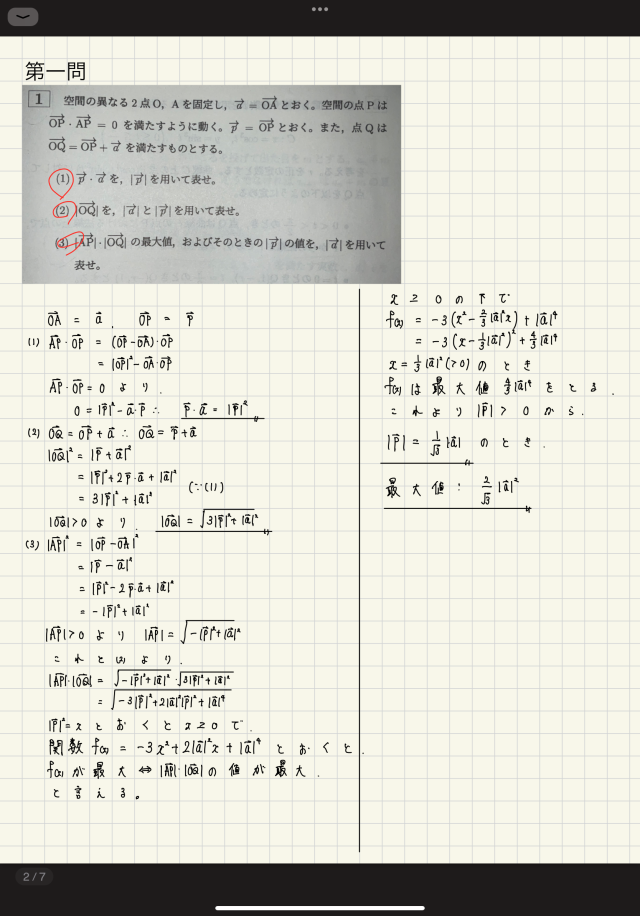 第一問
1 空間の異なる2点O, Aを固定し, a⃗ = OA⃗ とおく。空間の点Pは
OP⃗・AP⃗ = 0 を満たすように動く。p⃗ = OP⃗ とおく。また, 点Qは
OQ⃗ = OP⃗ + a⃗ を満たすものとする。
(1) p⃗・a⃗ を, |p⃗| を用いて表せ。
(2) |OQ⃗| を, |a⃗| と |p⃗| を用いて表せ。
(3) |AP⃗|・|OQ⃗| の最大値, およびそのときの |p⃗| の値を, |a⃗| を用いて
表せ。
OA⃗ = a⃗. OP⃗ = p⃗
(1) AP⃗・OP⃗ = (OP⃗-OA⃗)・OP⃗
= |OP⃗|²-OA⃗・OP⃗
AP⃗・OP⃗ = 0 より.
0 = |p⃗|²-a⃗・p⃗ ∴ p⃗・a⃗ = |p⃗|²
(2) OQ⃗ = OP⃗+a⃗ ∴ OQ⃗ = p⃗+a⃗
|OQ⃗|² = |p⃗+a⃗|²
= |p⃗|²+2p⃗・a⃗+|a⃗|²
= 3|p⃗|²+|a⃗|² (∵(1))
|OQ⃗|>0 より. |OQ⃗| = √(3|p⃗|²+|a⃗|²)
(3) |AP⃗|² = |OP⃗-OA⃗|²
= |p⃗-a⃗|²
= |p⃗|²-2p⃗・a⃗+|a⃗|²
= -|p⃗|²+|a⃗|²
|AP⃗|>0 より |AP⃗| = √(-|p⃗|²+|a⃗|²)
これと(2)より.
|AP⃗|・|OQ⃗| = √(-|p⃗|²+|a⃗|²)・√(3|p⃗|²+|a⃗|²)
= √(-3|p⃗|⁴+2|a⃗|²|p⃗|²+|a⃗|⁴)
|p⃗|²=x とおくと x≧0 で.
関数 f(x) = -3x²+2|a⃗|²x+|a⃗|⁴ とおくと.
f(x)が最大 ⇔ |AP⃗|・|OQ⃗| の値が最大.
と言える。
x ≧ 0 の下で
f(x) = -3(x²-2/3|a⃗|²x)+|a⃗|⁴
= -3(x-1/3|a⃗|²)²+4/3|a⃗|⁴
x=1/3|a⃗|²(>0) のとき
f(x)は最大値 4/3|a⃗|⁴ をとる.
これより |p⃗|>0 から.
|p⃗| = 1/√3|a⃗| のとき.
最大値: 2/√3 |a⃗|²
2 / 7